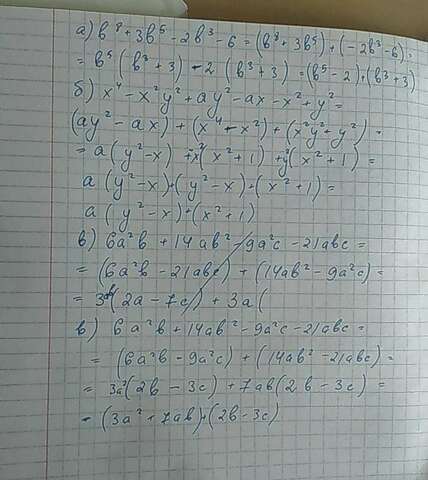 а) b⁸ + 3b⁵ - 2b³ - 6 = (b⁸ + 3b⁵) + (-2b³ - 6) =
= b⁵ (b³ + 3) - 2 (b³ + 3) = (b⁵ - 2) + (b³ + 3)
б) x⁴ - x²y² + ay² - ax - x² + y² =
(ay² - ax) + (x⁴ - x²) + (x²y² + y²) =
= a (y² - x) + x² (x² + 1) + y² (x² + 1) =
a (y² - x) + (y² - x) + (x² + 1) =
a (y² - x) + (x² + 1)
в) 6a²b + 14ab² - 9a²c - 21abc =
= (6a²b - 21abc) + (14ab² - 9a²c) =
= 3ab (2a - 7c) + 3a (
в) 6a²b + 14ab² - 9a²c - 21abc =
= (6a²b - 9a²c) + (14ab² - 21abc) =
= 3a² (2b - 3c) + 7ab (2b - 3c) =
= (3a² + 7ab) · (2b - 3c)